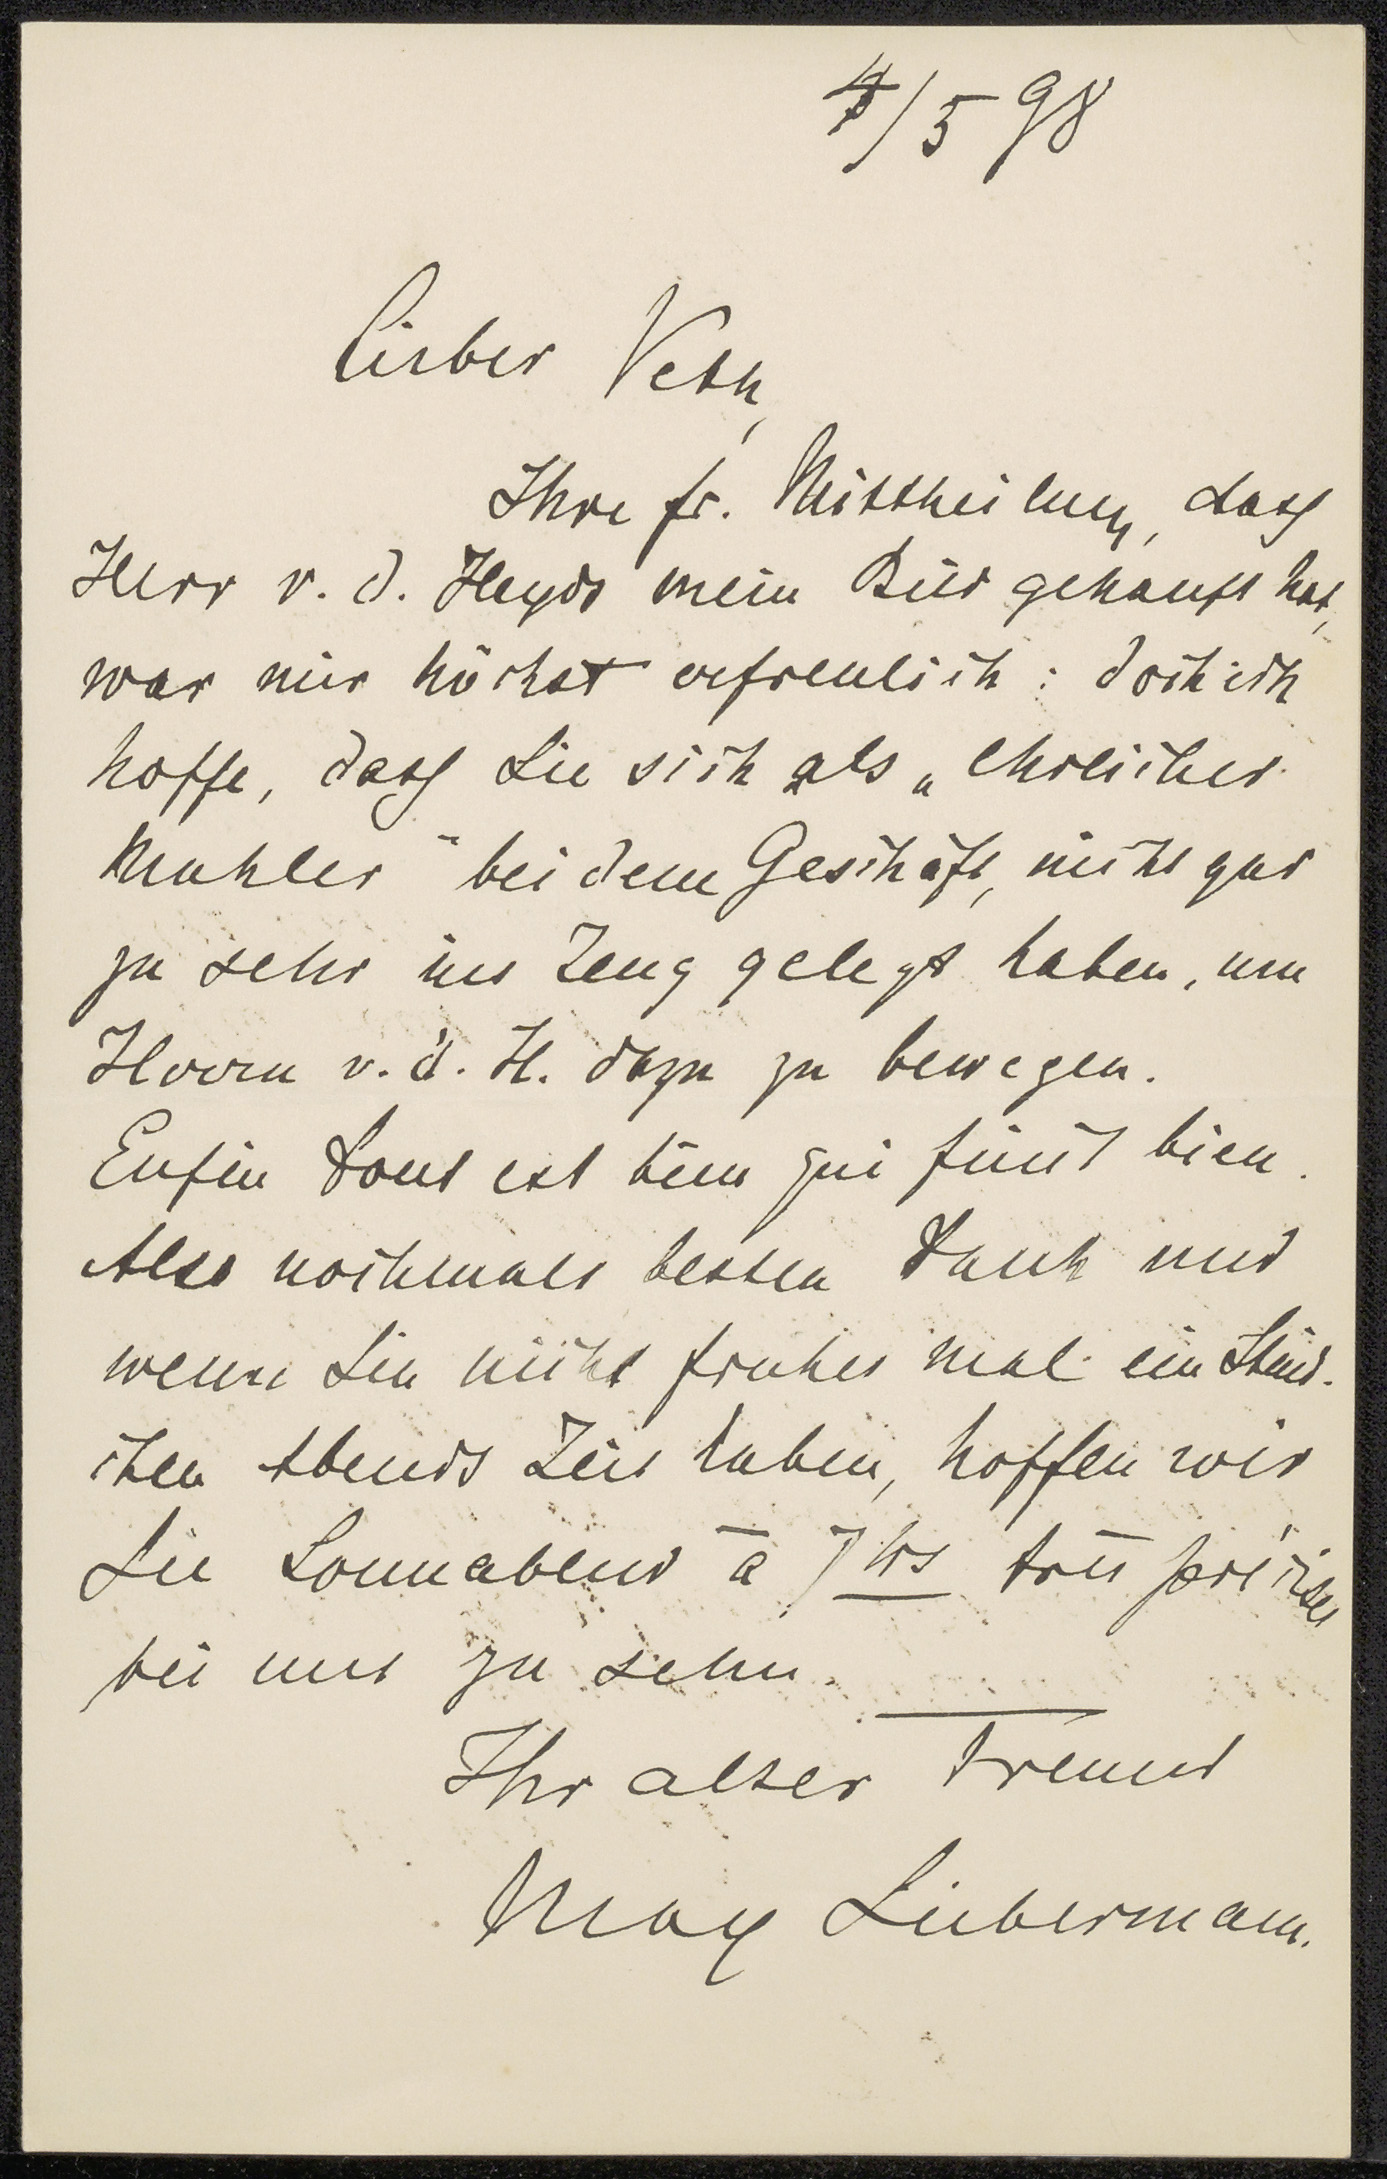 4/5 98
Lieber Veth,
Ihre fr. Mittheilung, dass
Herr v. d. Heydt mein Bild gekauft hat,
war mir höchst erfreulich: doch ich
hoffe, dass Sie sich als „ehrlicher
Makler" bei dem Geschäft, nicht gar
zu sehr ins Zeug gelegt haben, um
Herrn v. d. H. dazu zu bewegen.
Enfin tout est bien qui finit bien.
Also nochmals besten Dank und
wenn Sie nicht früher mal ein Stünd-
chen Abends Zeit haben, hoffen wir
Sie Sonnabend à 7 hrs très précises
bei uns zu sehn.
Ihr alter Freund
Max Liebermann.